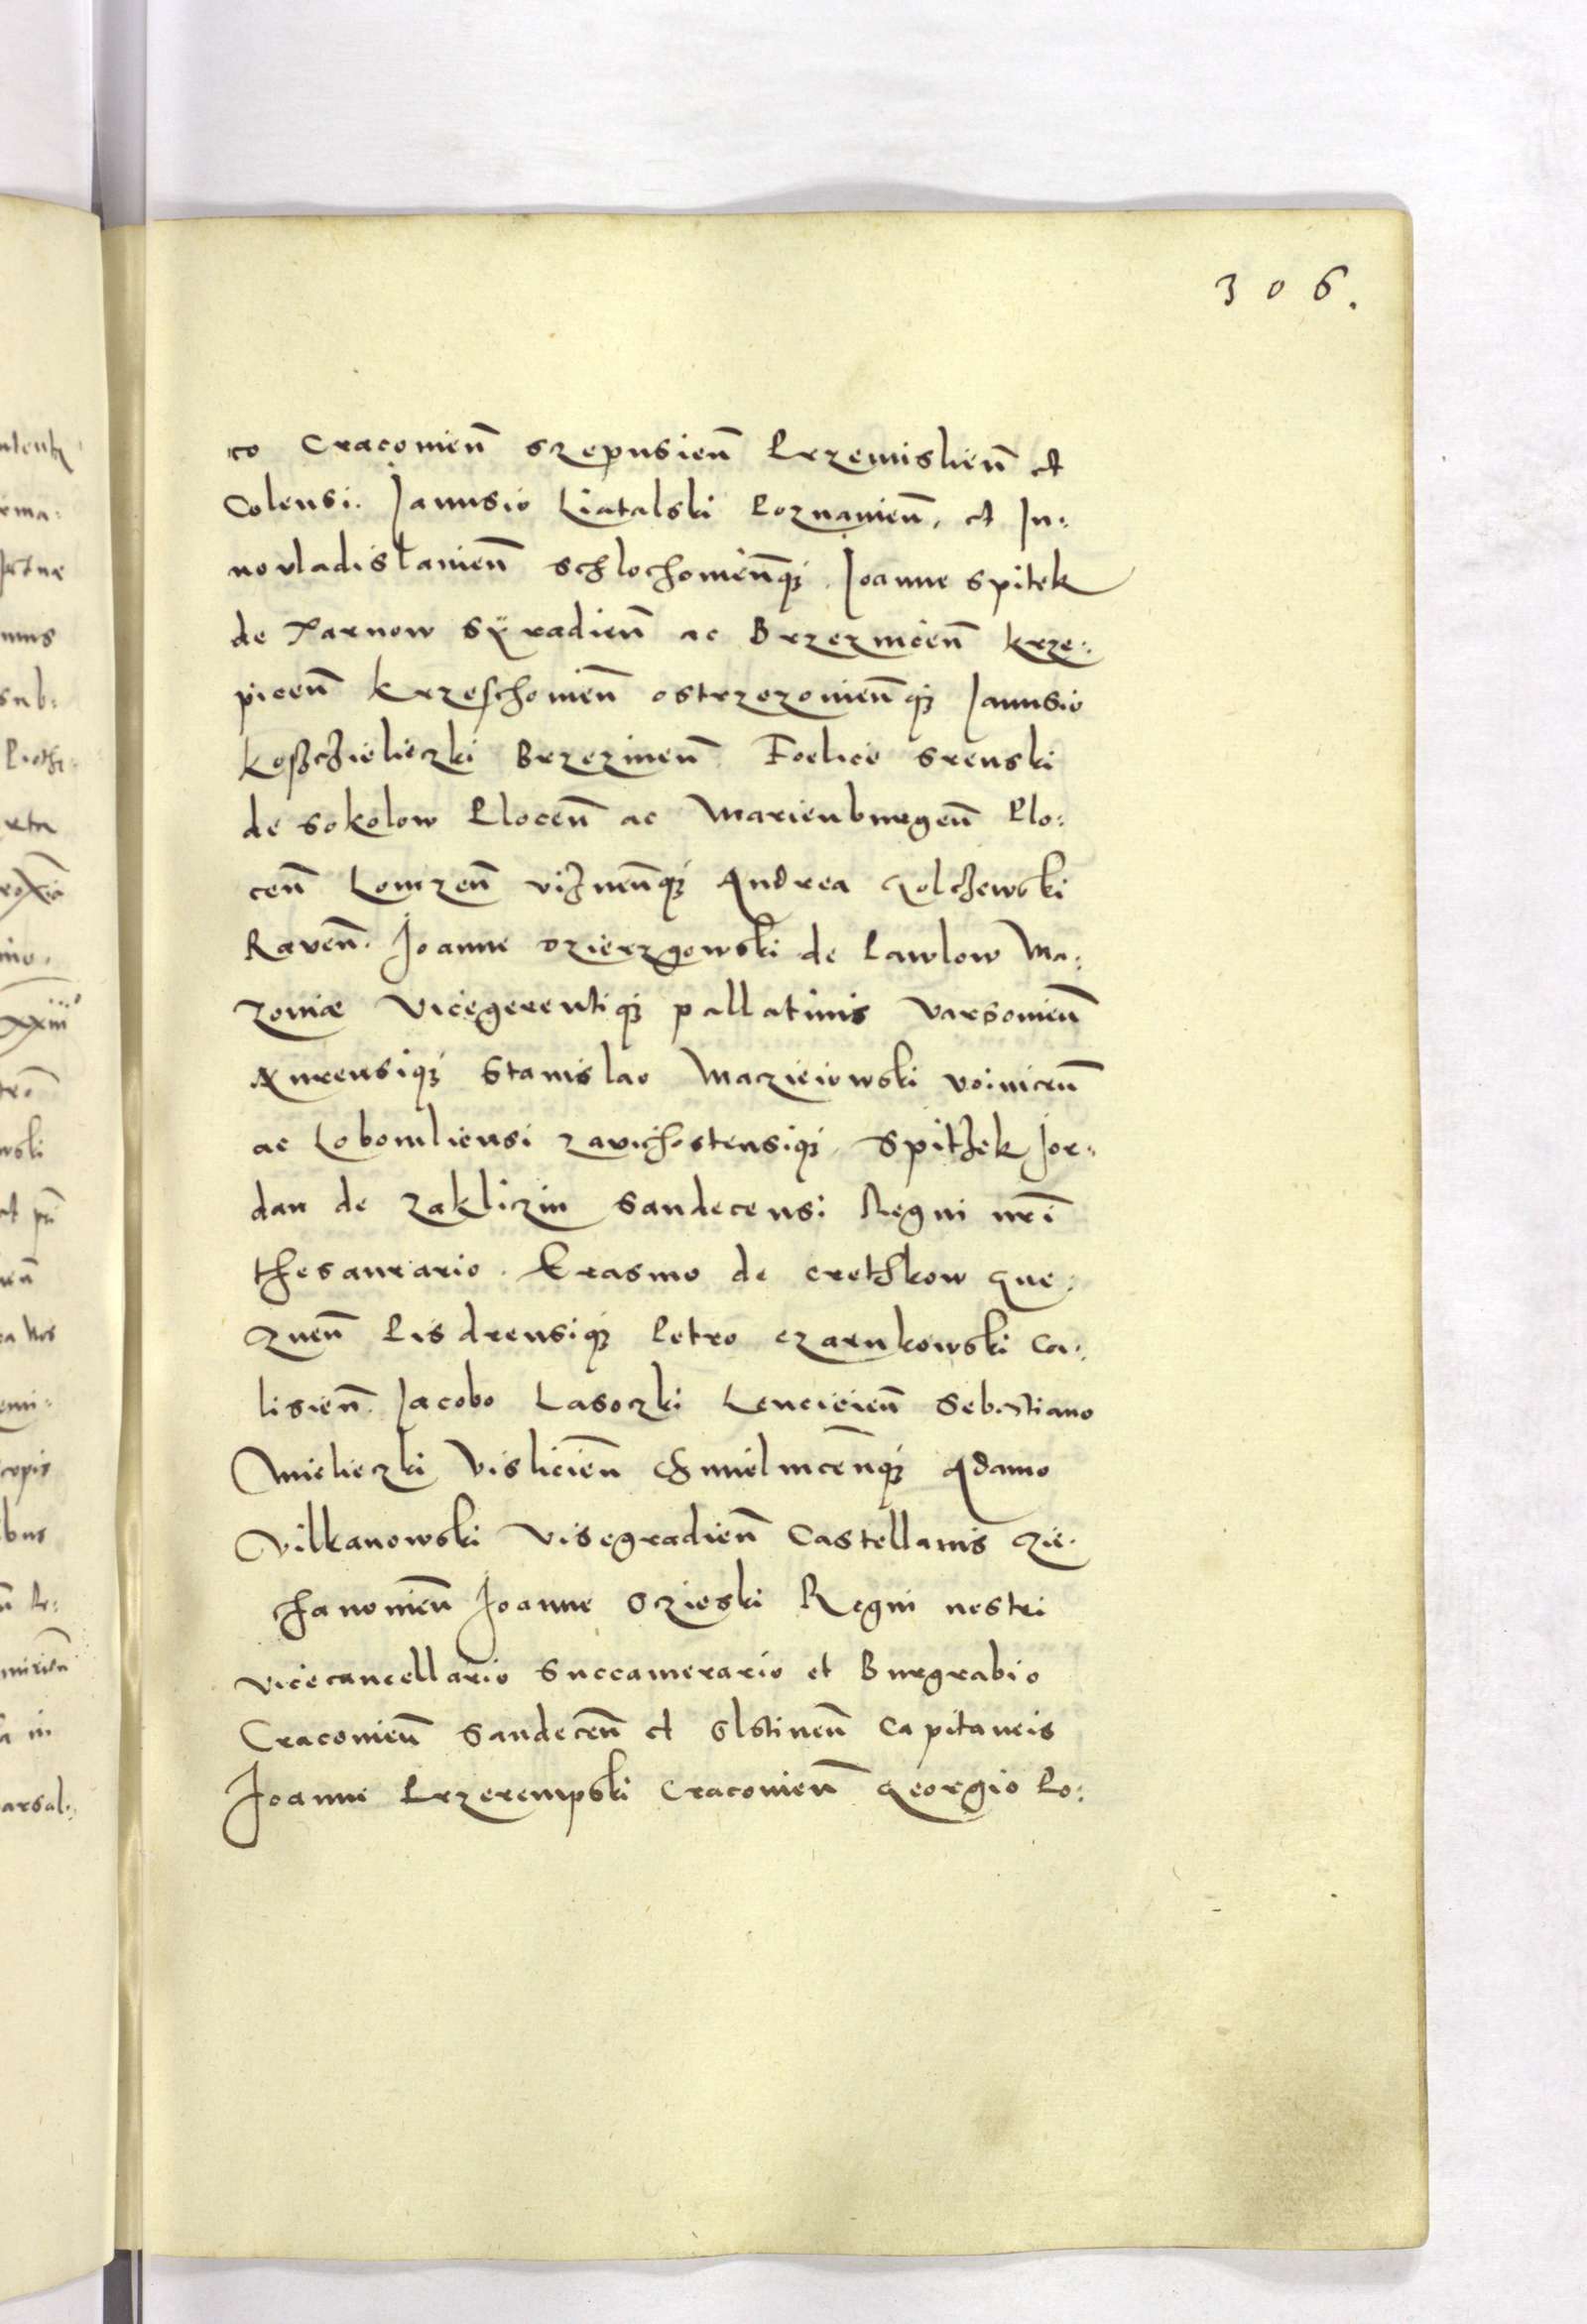 306.
co Cracovien̄ Szepusien̄ Przemislien̄ et
Colensi. Janusio Liatalski Poznanien̄, et Ju:
novladislavien̄ Schlochovien̄qꝫ. Joanne Spitek
de Tarnow Sÿradien̄ ac Brzeznicen̄ Krze:
picen̄ Krzeschovien̄ Ostrzezovien̄qꝫ Janusio
Koßczieliczki Brzezinen̄ Foelice Srenski
de Sokolow Plocen̄ ac Marienburgen̄ Plo:
cen̄ Lomzen̄ viznen̄qꝫ Andrea Golczewski
Raven̄. Joanne Dzierzgowski de Pawlow Ma:
zoviæ Vicegerentiqꝫ pallatinis Varsovien̄
Xurensiqꝫ Stanislao Macziejowski voinicen̄
ac Lobomliensi Zavichostensiqꝫ. Spithek Jor:
dan de Zakliczin Sandecensi Regni nr̄i
thesaurario. Erasmo de Crethkow Gne:
znen̄ Pisdrensiqꝫ Petro Czarnkowski Ca:
lisien̄. Jacobo Lasoczki Lencicien̄ Sebastiano
Mieliczki Vislicien̄ Chmielnicen̄qꝫ Adamo
Vilkanowski Visegradien̄ Castellanis Zie:
chanovien̄ Joanne Oczieski Regni nostri
vicecancellario Succamerario et Burgrabio
Cracovien̄ Sandecen̄ et Olstinen̄ Capitaneis
Joanne Przerempski Cracovien̄ Georgio Po: